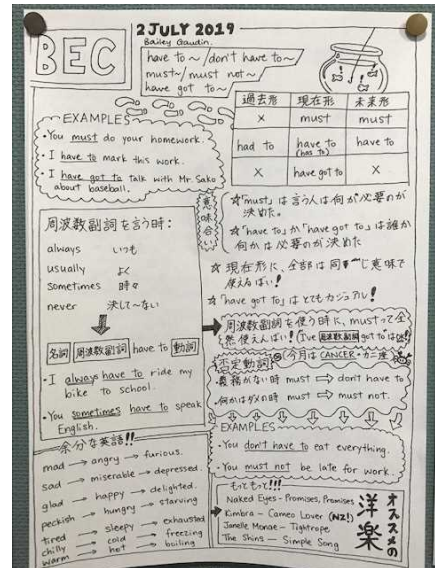 BEC
2 JULY 2019
Bailey Gaudin.
have to ~ / don't have to ~
must ~ / must not ~
have got to ~
過去形 現在形 未来形
× must must
had to have to (has to) have to
× have got to ×
EXAMPLES
・You must do your homework.
・I have to mark this work.
・I have got to talk with Mr. Sako
about baseball.
意味合い
☆「must」は言う人は何が必要のが
決めた。
☆「have to」か「have got to」は誰か
何かは必要のが決めた
☆現在形に、全部は同じ意味で
使えるばい!
☆「have got to」はとてもカジュアル!
周波数副詞を言う時:
always いつも
usually よく
sometimes 時々
never 決して~ない
名詞 周波数副詞 have to 動詞
・I always have to ride my
bike to school.
・You sometimes have to speak
English.
周波数副詞を使う時に、mustって全
然使えんばい! (I've 周波数副詞 got to はOK!)
否定動詞
今月は CANCER・カニ座
・義務がない時 must → don't have to
・何かはダメの時 must → must not.
EXAMPLES
・You don't have to eat everything.
・You must not be late for work.
余分な英語!!
mad → angry → furious.
sad → miserable → depressed.
glad → happy → delighted.
peckish → hungry → starving
tired → sleepy → exhausted
chilly → cold → freezing
warm → hot → boiling
もってもって!!!
Naked Eyes - Promises, Promises
Kimbra - Cameo Lover (NZ!)
Janelle Monae - Tightrope
The Shins - Simple Song
オススメの
洋楽